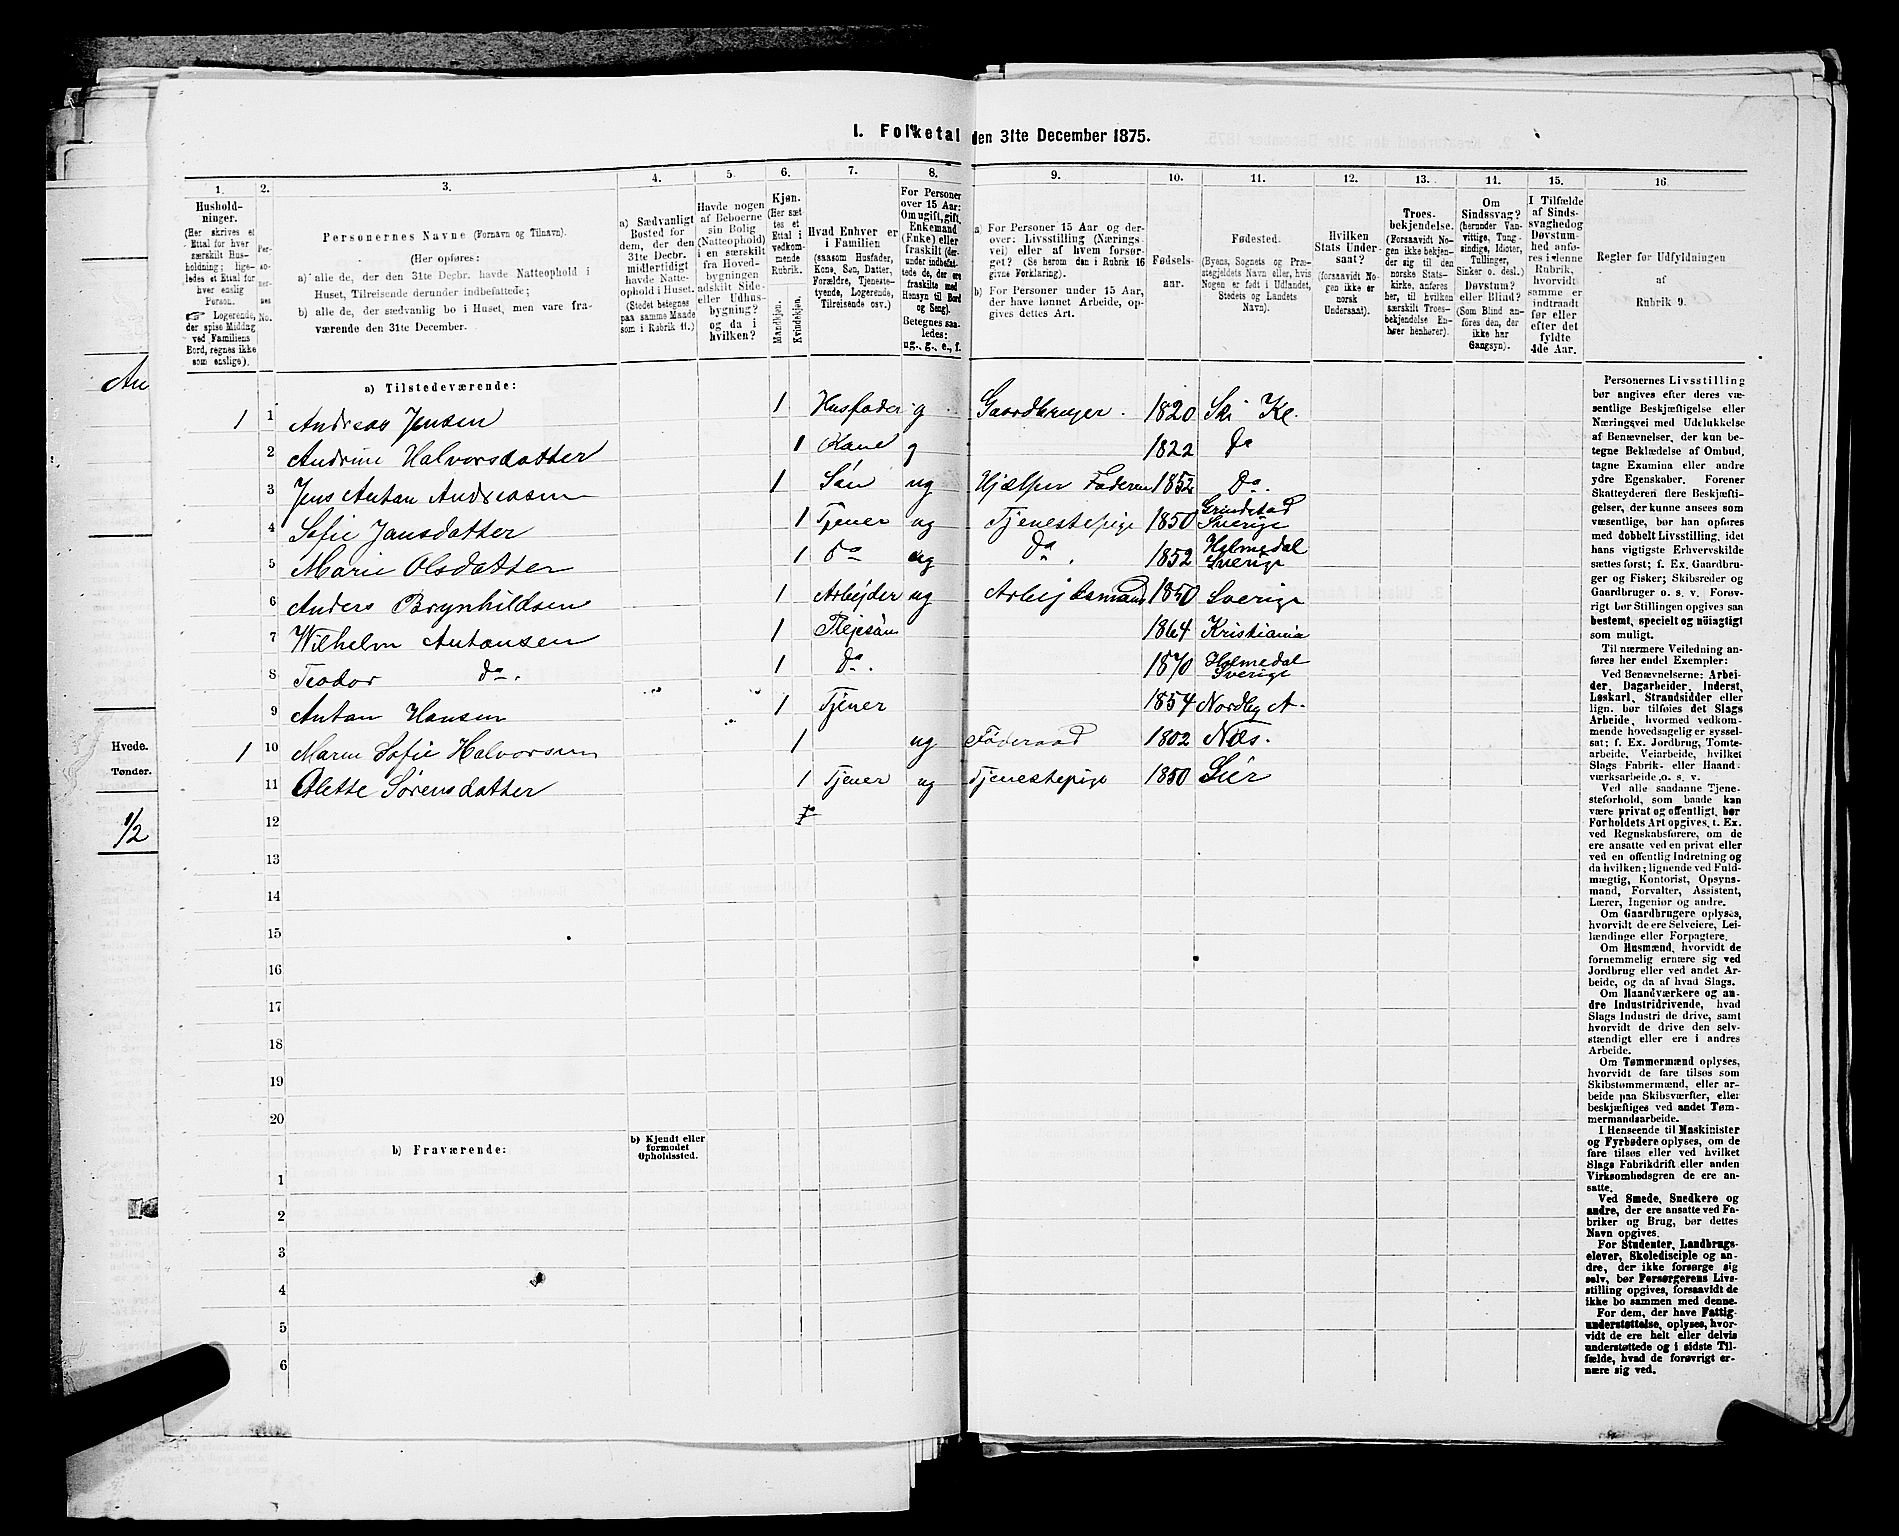 I. Folketal den 31te December 1875.
1. 2. 3. 4. 5. 6. 7. 8. 9. 10. 11. 12. 13. 14. 15. 16
Husholdninger.
(Her skrives et
Ettal for hver
særskilt Husholdning;
ligeledes et Ettal for
hver enslig
Person.
☞ Logerende,
der spise Middag
ved Familiens
Bord, regnes ikke
som enslige).
Personernes No.
Personernes Navne (Fornavn og Tilnavn).
(Her opføres:
a) alle de, der den 31te Decbr. havde Natteophold i
Huset, Tilreisende derunder indbefattede;
b) alle de, der sædvanlig bo i Huset, men vare fraværende den 31te December.
a) Sædvanligt
Bosted for
dem, der den
31te Decbr.
midlertidigt
havde Natteophold i Huset.
(Stedet betegnes
paa samme Maade
som i Rubrik 11.)
Havde nogen
af Beboerne
sin Bolig
(Natteophold)
i en særskilt
fra Hovedbygningen
adskilt Side-
eller Udhusbygning?
og da i
hvilken?
Kjøn.
(Her sættes et
Ettal i
vedkommende
Rubrik.
Mandkjøn.
Kvindekjøn.
Hvad Enhver er
i Familien
(saasom Husfader,
Kone, Søn, Datter,
Forældre, Tjenestetyende, Logerende,
Tilreisende osv.)
For Personer
over 15 Aar:
Om ugift, gift,
Enkemand
(Enke) eller
fraskilt (derunder indbefattede de, der ere
fraskilte med
Hensyn til Bord
og Seng).
Betegnes saaledes:
ug., g., e., f.
a) For Personer 15 Aar og derover: Livsstilling (Næringsvei) eller af hvem forsørget? (Se herom den i Rubrik 16
givne Forklaring).
b) For Personer under 15 Aar,
der have lønnet Arbeide, opgives dettes Art.
Fødselsaar.
Fødested.
(Byens, Sognets og Præstegjeldets Navn eller, hvis
Nogen er født i Udlandet,
Stedets og Landets
Navn).
Hvilken
Stats Undersaat?
(forsaavidt Nogen ikke er
norsk
Undersaat).
Troesbekjendelse.
(Forsaavidt Nogen ikke bekjender sig til den
norske Statskirke, anføres
her, til hvilken
særskilt Troesbekjendelse Enhver henhører).
Om
Sindssvag?
(herunder Vanvittige, Tungsindige, Idioter,
Tullinger,
Sinker o. desl.)
Døvstum?
eller Blind?
(Som Blind anføres den, der
ikke har
Gangsyn).
I Tilfælde
af Sindssvaghed og
Døvstumhed anføres i denne
Rubrik,
hvorvidt
samme er
indtraadt
før eller
efter det
fyldte
4de Aar.
Regler for Udfyldningen
af
Rubrik 9.
a) Tilstedeværende:
1 1 Andreas Jensen 1 Husfader g Gaardbruger. 1820 Ski Kl.
2 Andrine Halvorsdatter 1 Kone g 1822 Do
3 Jens Anton Andreasen 1 Søn ug Hjælper Faderen 1852 Do.
4 Sofie Jansdatter 1 Tjener ug Tjenestepige 1850 Grindstad Sverige
5 Marie Olsdatter 1 Do ug Do. 1852 Holmedal Sverige
6 Anders Brynhildsen 1 Arbejder ug Arbejdsmand 1850 Sverige
7 Wilhelm Antonsen 1 Plejesøn 1864 Kristiania
8 Teodor Do. 1 Do. 1870 Holmedal Sverige
9 Anton Hansen 1 Tjener 1854 Nordby A.
1 10 Maren Sofie Halvorsen 1 ug Føderaad 1802 Næs.
11 Olette Sørensdatter 1 Tjener ug Tjenestepige 1850 Lier
12
13
14
15
16
17
18
19
20
b) Fraværende:
b) Kjendt eller
formodet
Opholdssted.
1
2
3
4
5
6
Personernes Livsstilling
bør angives efter deres væsentlige Beskjæftigelse eller
Næringsvei med Udelukkelse
af Benævnelser, der kun betegne Beklædelse af Ombud,
tagne Examina eller andre
ydre Egenskaber. Forener
Skatteyderen flere Beskjæftigelser, der kunne ansees som
væsentlige, bør han opføres
med dobbelt Livsstilling, idet
hans vigtigste Erhvervskilde
sættes først; f. Ex. Gaardbruger og Fisker; Skibsreder og
Gaardbruger o. s. v. Forøvrigt bør Stillingen opgives saa
bestemt, specielt og nöiagtigt
som muligt.
Til nærmere Veiledning anføres her endel Exempler:
Ved Benævnelserne: Arbeider, Dagarbeider, Inderst,
Løskarl, Strandsidder eller
lign. bør tilføies det Slags
Arbeide, hvormed vedkommende hovedsagelig er sysselsat; f. Ex. Jordbrug, Tomtearbeide, Veiarbeide, hvilket
Slags Fabrik- eller Haandværksarbeide, o. s. v.
Ved alle saadanne Tjenesteforhold, som baade kan
være privat og offentligt, bør
Forholdets Art opgives, t. Ex.
ved Regnskabsførere, om de
ere ansatte ved en privat eller
ved en offentlig Indretning og
da hvilken; lignende ved Fuldmægtig, Kontorist, Opsynsmand, Forvalter, Assistent,
Lærer, Ingeniør og andre.
Om Gaardbrugere oplyses,
hvorvidt de ere Selveiere, Leilændinge eller Forpagtere.
Om Husmænd, hvorvidt de
fornemmelig ernære sig ved
Jordbrug eller ved andet Arbeide, og da af hvad Slags.
Om Haandværkere og andre Industridrivende, hvad
Slags Industri de drive, samt
hvorvidt de drive den selvstændigt eller ere i andres
Arbeide.
Om Tømmermænd oplyses,
hvorvidt de fare tilsøs som
Skibstømmermænd, eller arbeide paa Skibsværfter, eller
beskjæftiges ved andet Tømmermandsarbeide.
I Henseende til Maskinister
og Fyrbødere oplyses, om de
fare tilsøs eller ved hvilket
Slags Fabrikdrift eller anden
Virksomhedsgren de ere ansatte.
Ved Smede, Snedkere og
andre, der ere ansatte ved Fabriker og Brug, bør dettes
Navn opgives.
For Studenter, Landbrugselever, Skoledisciple og andre, der ikke forsørge sig
selv, bør Forsørgerens Livsstilling opgives, forsaavidt de
ikke bo sammen med denne.
For dem, der have Fattigunderstøttelse, oplyses, hvorvidt de ere helt eller delvis
understøttede og i sidste Tilfælde, hvad de forøvrigt ernære sig ved.
An
Hvede.
Tønder.
1/2